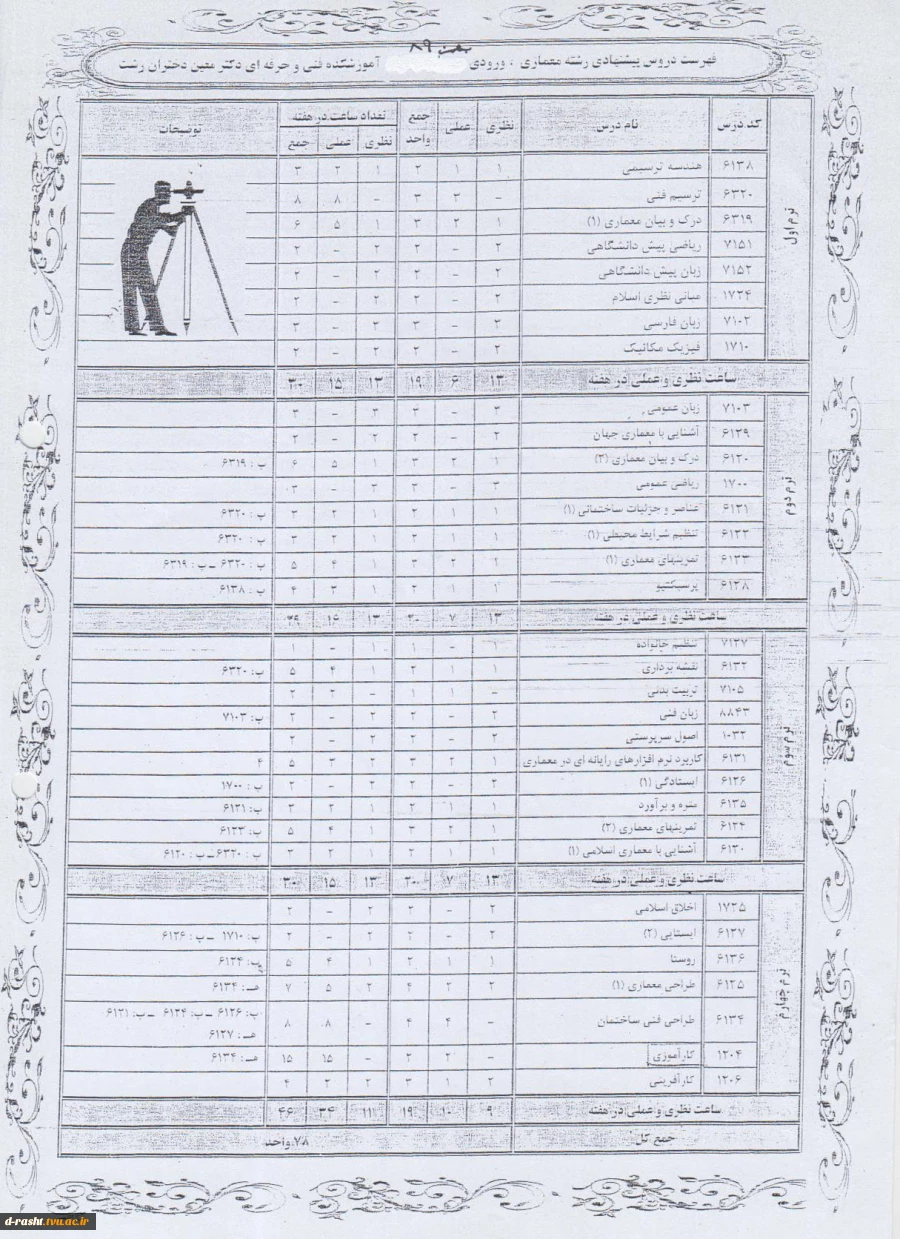 بهمن ۸۹
فهرست دروس پیشنهادی رشته معماری ، ورودی آموزشکده فنی و حرفه ای دکتر معین دختران رشت
کد درس نام درس نظری عملی جمع واحد تعداد ساعت در هفته نظری عملی جمع توضیحات
ترم اول
۶۱۳۸ هندسه ترسیمی ۱ ۱ ۲ ۱ ۲ ۳
۶۳۲۰ ترسیم فنی - ۳ ۳ - ۸ ۸
۶۳۱۹ درک و بیان معماری (۱) ۱ ۲ ۳ ۱ ۵ ۶
۷۱۵۱ ریاضی پیش دانشگاهی ۲ - ۲ ۲ - ۲
۷۱۵۲ زبان پیش دانشگاهی ۲ - ۲ ۲ - ۲
۱۷۲۴ مبانی نظری اسلام ۲ - ۲ ۲ - ۲
۷۱۰۲ زبان فارسی - -
۱۷۱۰ فیزیک مکانیک ۲ - ۲ ۲ - ۲
ساعت نظری و عملی در هفته ۱۳ ۶ ۱۹ ۱۳ ۱۵ ۳۰
ترم دوم
۷۱۰۳ زبان عمومی ۳ - ۳ ۳ - ۳
۶۱۲۹ آشنایی با معماری جهان ۲ - ۲ ۲ - ۲
۶۱۲۰ درک و بیان معماری (۲) ۱ ۲ ۳ ۱ ۵ ۶ پ : ۶۳۱۹
۱۷۰۰ ریاضی عمومی ۳ - ۳ ۳ - ۳
۶۱۲۱ عناصر و جزئیات ساختمانی (۱) ۱ ۱ ۲ ۱ ۲ ۳ پ : ۶۳۲۰
۶۱۲۲ تنظیم شرایط محیطی (۱) ۱ ۱ ۲ ۱ ۲ ۳ پ : ۶۳۲۰
۶۱۲۳ تمرینهای معماری (۱) ۱ ۲ ۳ ۱ ۴ ۵ پ : ۶۳۲۰ - پ : ۶۳۱۹
۶۱۲۸ پرسپکتیو ۱ ۱ ۲ ۱ ۳ ۴ پ : ۶۱۳۸
ساعت نظری و عملی در هفته ۱۳ ۷ ۲۰ ۱۳ ۱۶ ۲۹
ترم سوم
۷۱۲۷ تنظیم خانواده ۱ - ۱ ۱ - ۱
۶۱۳۲ نقشه برداری ۱ ۱ ۲ ۱ ۴ ۵ پ: ۶۳۲۰
۷۱۰۵ تربیت بدنی - ۱ ۱ - ۲ ۲
۸۸۴۳ زبان فنی ۲ - ۲ ۲ - ۲ پ: ۷۱۰۳
۱۰۳۲ اصول سرپرستی ۲ - ۲ ۲ - ۲
۶۱۳۱ کاربرد نرم افزارهای رایانه ای در معماری ۱ ۲ ۳ ۲ ۳ ۵ ۴
۶۱۲۶ ایستادگی (۱) ۲ - ۲ ۲ - ۲ پ : ۱۷۰۰
۶۱۳۵ متره و برآورد ۱ ۱ ۲ ۱ ۲ ۳ پ: ۶۱۲۱
۶۱۲۴ تمرینهای معماری (۲) ۱ ۲ ۳ ۱ ۴ ۵ پ: ۶۱۲۳
۶۱۳۰ آشنایی با معماری اسلامی (۱) ۱ ۱ ۲ ۱ ۲ ۳ پ : ۶۳۲۰ - پ : ۶۱۲۰
ساعت نظری و عملی در هفته ۱۳ ۷ ۲۰ ۱۳ ۱۵ ۳۰
ترم چهارم
۱۷۲۵ اخلاق اسلامی ۲ - ۲ ۲ - ۲
۶۱۲۷ ایستایی (۲) ۲ - ۲ ۲ - ۲ پ: ۱۷۱۰ - پ : ۶۱۲۶
۶۱۳۶ روستا ۱ ۱ ۲ ۱ ۴ ۵ پ: ۶۱۲۴
۶۱۲۵ طراحی معماری (۱) ۲ ۲ ۴ ۲ ۵ ۷ هـ : ۶۱۳۴
۶۱۳۴ طراحی فنی ساختمان - ۴ ۴ - ۸ ۸ پ: ۶۱۲۶ - پ: ۶۱۲۴ - پ: ۶۱۲۱
هـ : ۶۱۲۷
۱۲۰۴ کارآموزی - ۲ ۲ - ۱۵ ۱۵ هـ : ۶۱۳۴
۱۲۰۶ کارآفرینی ۲ ۱ ۳ ۲ ۲ ۴
ساعت نظری و عملی در هفته ۹ ۱۰ ۱۹ ۱۱ ۳۴ ۴۶
جمع کل ۷۸ واحد
d-rasht.tvu.ac.ir